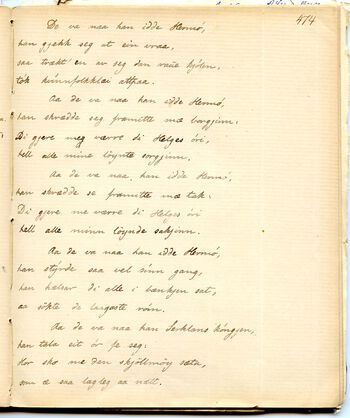 474
De va naa han idde Hermó,
han gjekk seg at ein vraa,
saa trækt en av seg den raue kjolen,
tók kvinnfolkklæi attpaa.
Aa de va naa han idde Hermó,
han skrædde seg framitte mæ borgjinn:
Di gjere meg værre di Helges óri,
hell alle mine löynte sorgjinn.
Aa de va naa han idde Hermó,
han skrædde se framitte mæ tak:
Di gjere me værre di Helges óri
hell alle minn löynde sakjinn.
Aa de va naa han idde Hermó,
han stýrde saa vel sinn gang,
han helsar di alle i bænkjen sat,
aa sökte de
Aa de va naa han Serklans kóngjen,
han tala eit ór fe seg:
Hor sko me den skjöltmöy sæta,
som æ saa lagleg aa nætt.